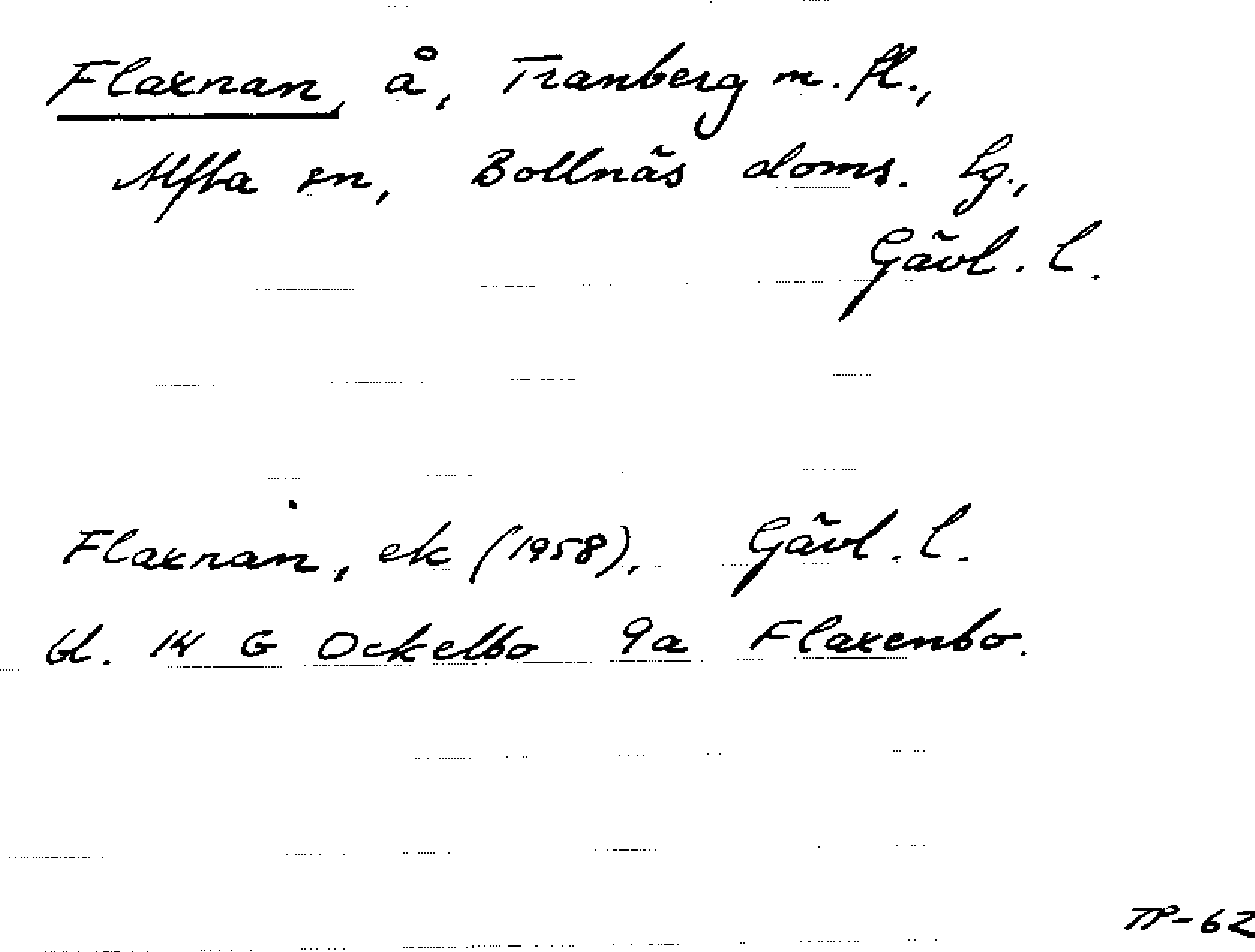 Flaxnan, å, Tranberg m. fl.,
Alfta sn, Bollnäs doms. lg.,
Gävl. l.
Flaxnan, ek (1958), Gävl. l.
bl. 14 G Ockelbo 9a Flaxenbo.
TP-62